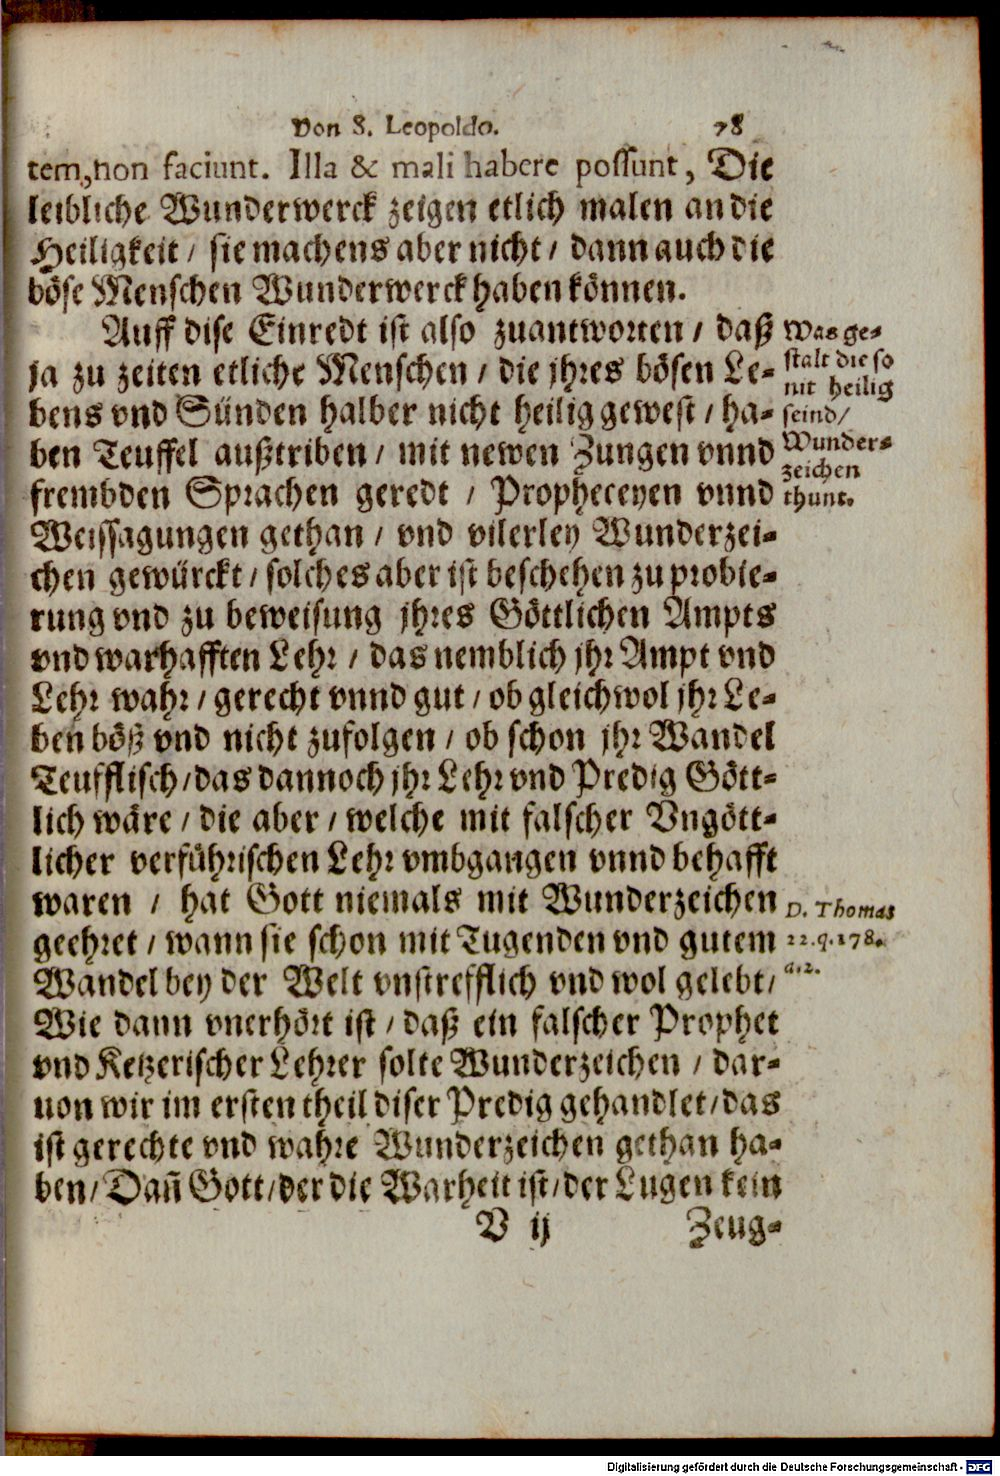 Von S. Leopoldo. 78
tem, non faciunt. Illa & mali habere possunt, Die
leibliche Wunderwerck zeigen etlich malen an die
Heiligkeit / sie machens aber nicht / dann auch die
böse Menschen Wunderwerck haben können.
Auff dise Einredt ist also zuantworten / daß
ja zu zeiten etliche Menschen / die jhres bösen Le-
bens vnd Sünden halber nicht heilig gewest / ha-
ben Teuffel außtriben / mit newen Zungen vnnd
frembden Sprachen geredt / Propheceyen vnnd
Weissagungen gethan / vnd vilerley Wunderzei-
chen gewürckt / solches aber ist beschehen zu probie-
rung vnd zu beweisung jhres Göttlichen Ampts
vnd warhafften Lehr / das nemblich jhr Ampt vnd
Lehr wahr / gerecht vnnd gut / ob gleichwol jhr Le-
ben böß vnd nicht zufolgen / ob schon jhr Wandel
Teufflisch / das dannoch jhr Lehr vnd Predig Gött-
lich wäre / die aber / welche mit falscher Vngött-
licher verführischen Lehr vmbgangen vnnd behafft
waren / hat Gott niemals mit Wunderzeichen
geehret / wann sie schon mit Tugenden vnd gutem
Wandel bey der Welt vnstrefflich vnd wol gelebt /
Wie dann vnerhört ist / daß ein falscher Prophet
vnd Ketzerischer Lehrer solte Wunderzeichen / dar-
uon wir im ersten theil diser Predig gehandlet / das
ist gerechte vnd wahre Wunderzeichen gethan ha-
ben / Dañ Gott / der die Warheit ist / der Lugen kein
V ij Zeug-
Was ge-
stalt die so
nit heilig
seind /
Wunder-
zeichen
thunt.
D. Thomas
22. q. 178.
a. 2.
Digitalisierung gefördert durch die Deutsche Forschungsgemeinschaft - DFG